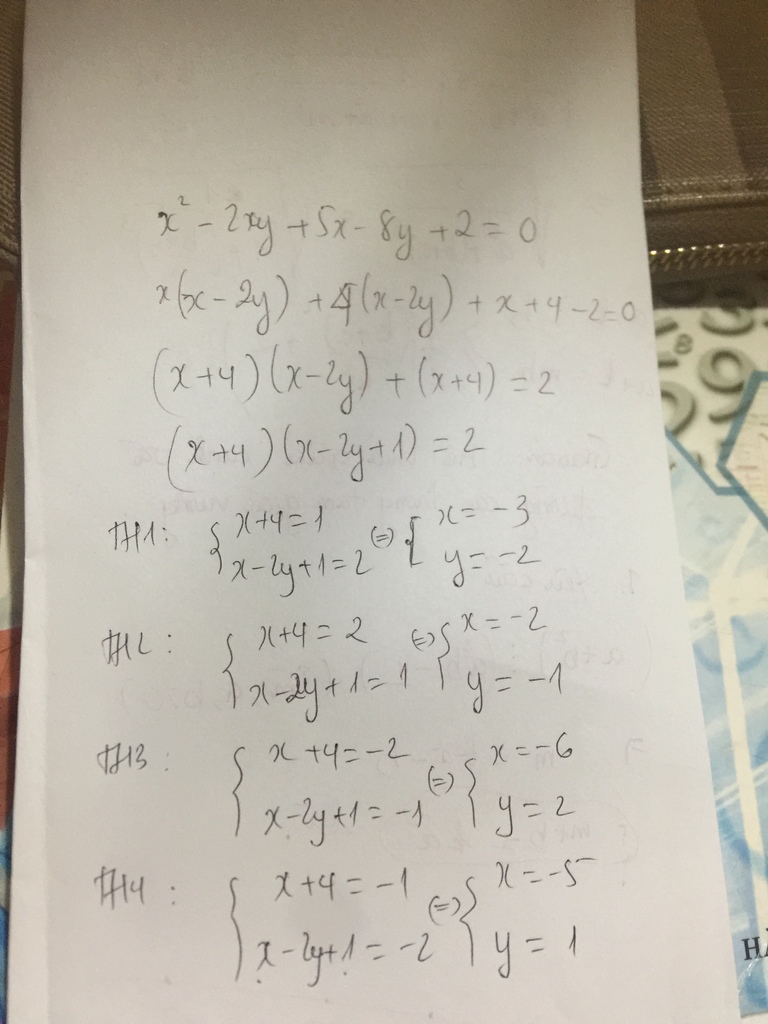 x² - 2xy + 5x - 8y + 2 = 0
x(x - 2y) + 4(x - 2y) + x + 4 - 2 = 0
(x + 4)(x - 2y) + (x + 4) = 2
(x + 4)(x - 2y + 1) = 2
TH1: { x + 4 = 1 (=) { x = -3
x - 2y + 1 = 2 y = -2
TH2: { x + 4 = 2 (=) { x = -2
x - 2y + 1 = 1 y = -1
TH3: { x + 4 = -2 (=) { x = -6
x - 2y + 1 = -1 y = 2
TH4: { x + 4 = -1 (=) { x = -5
x - 2y + 1 = -2 y = 1